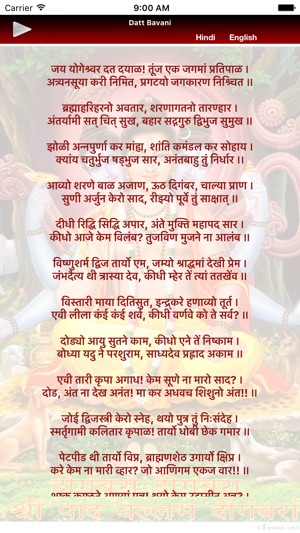 Carrier
9:00 AM
Datt Bavani
Hindi English
जय योगेश्वर दत दयाळ! तूंज एक जगमां प्रतिपाळ ।
अत्र्यनसूया करी निमित, प्रगटयो जगकारण निश्चित ॥
ब्रह्माहरिहरनो अवतार, शरणागतनो तारण्हार ।
अंतर्यामी सत् चित् सुख, बहार सद्गुरु द्विभुज सुमुख ॥
झोळी अन्नपुर्णा कर मांह्य, शांति कमंडल कर सोहाय ।
क्यांय चतुर्भुज षड्भुज सार, अनंतबाहु तुं निर्धार ॥
आव्यो शरणे बाळ अजाण, ऊठ दिगंबर, चाल्या प्राण ।
सुणी अर्जुन केरो साद, रीझ्यो पूर्वे तुं साक्षात् ॥
दीधी रिद्धि सिद्धि अपार, अंते मुक्ति महापद सार ।
कीधो आजे केम विलंब? तुजविण मुजने ना आलंब ॥
विष्णुशर्म द्विज तार्यो एम, जम्यो श्राद्धमां देखी प्रेम ।
जंभदैत्य थी त्रास्या देव, कीधी म्हेर तें त्यां ततखेंव ॥
विस्तारी माया दितिसुत, इन्द्रकरे हणाव्यो तूर्त ।
एवी लीला कंई कंई शर्व, कीधी वर्णवे को ते सर्व? ॥
दोड्यो आयु सुतने काम, कीधो एने तें निष्काम ।
बोध्या यदु ने परशुराम, साध्यदेव प्रह्लाद अकाम ॥
एवी तारी कृपा अगाध! केम सूणे ना मारो साद? ।
दोड, अंत ना देख अनंत! मा कर अधवच शिशुनो अंत!! ॥
जोई द्विजस्त्री केरो स्नेह, थयो पुत्र तुं निःसंदेह ।
स्मर्तृगामी कलितार कृपाळ! तार्यो धोबी छेक गमार ॥
पेटपीड थी तार्यो विप्र, ब्राह्मणशेठ उगार्यो क्षिप्र ।
करे केम ना मारी व्हार? जो आणिगम एकज वार!! ॥
दिगंबरा दिगंबरा
श्री पाद वल्लभ दिगंबरा